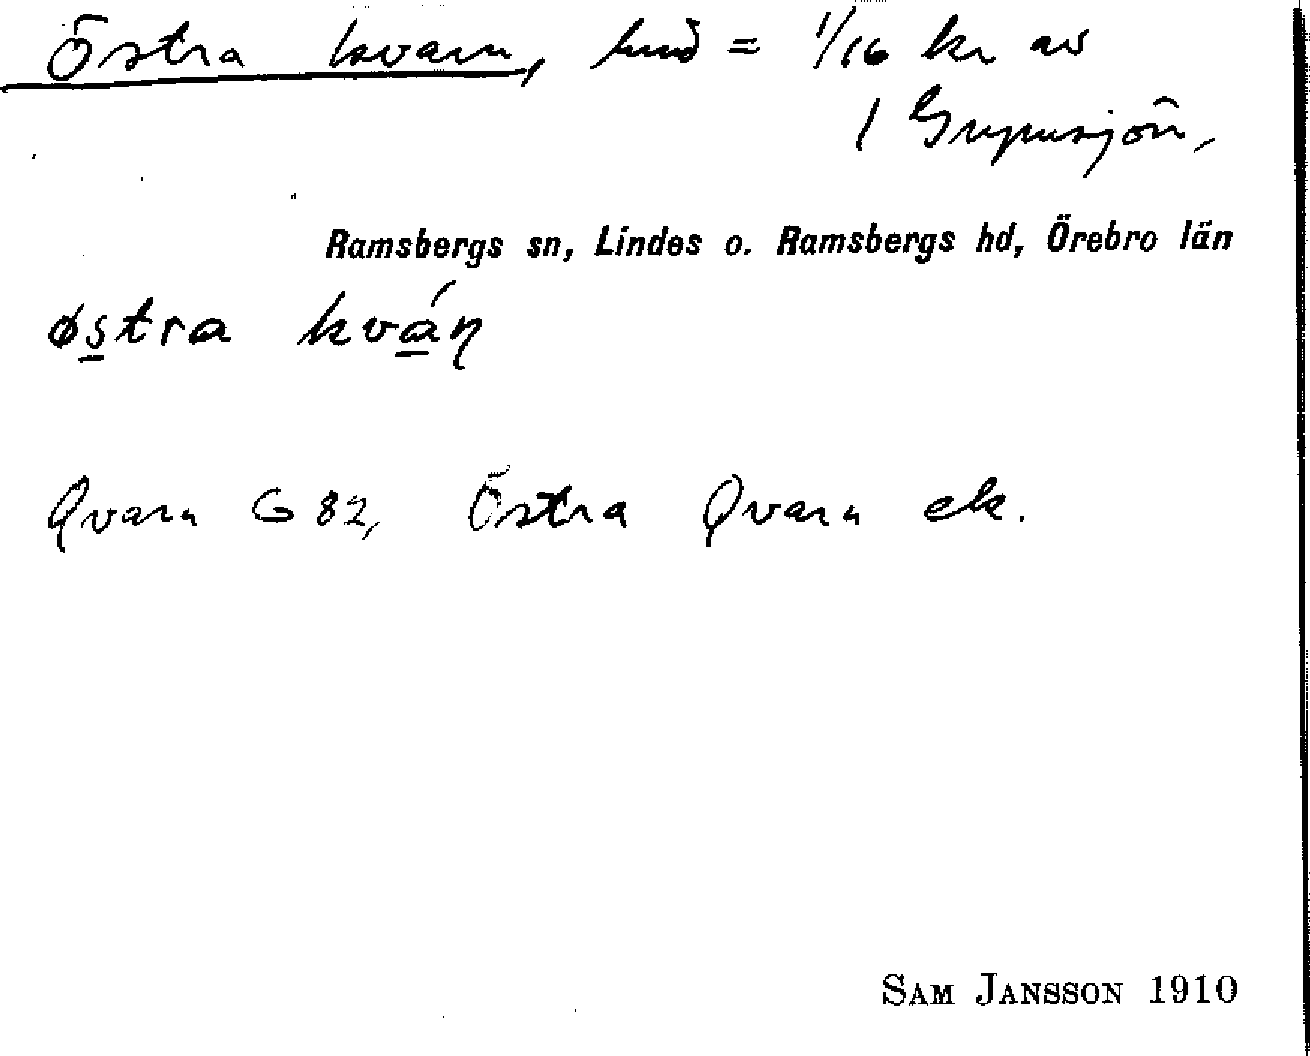 Östra kvarn, hmd = 1/16 kr av
1 Grypensjön,
Ramsbergs sn, Lindes o. Ramsbergs hd, Örebro län
østra kváƞ
Qvarn G 82, Östra Qvarn ek.
SAM JANSSON 1910